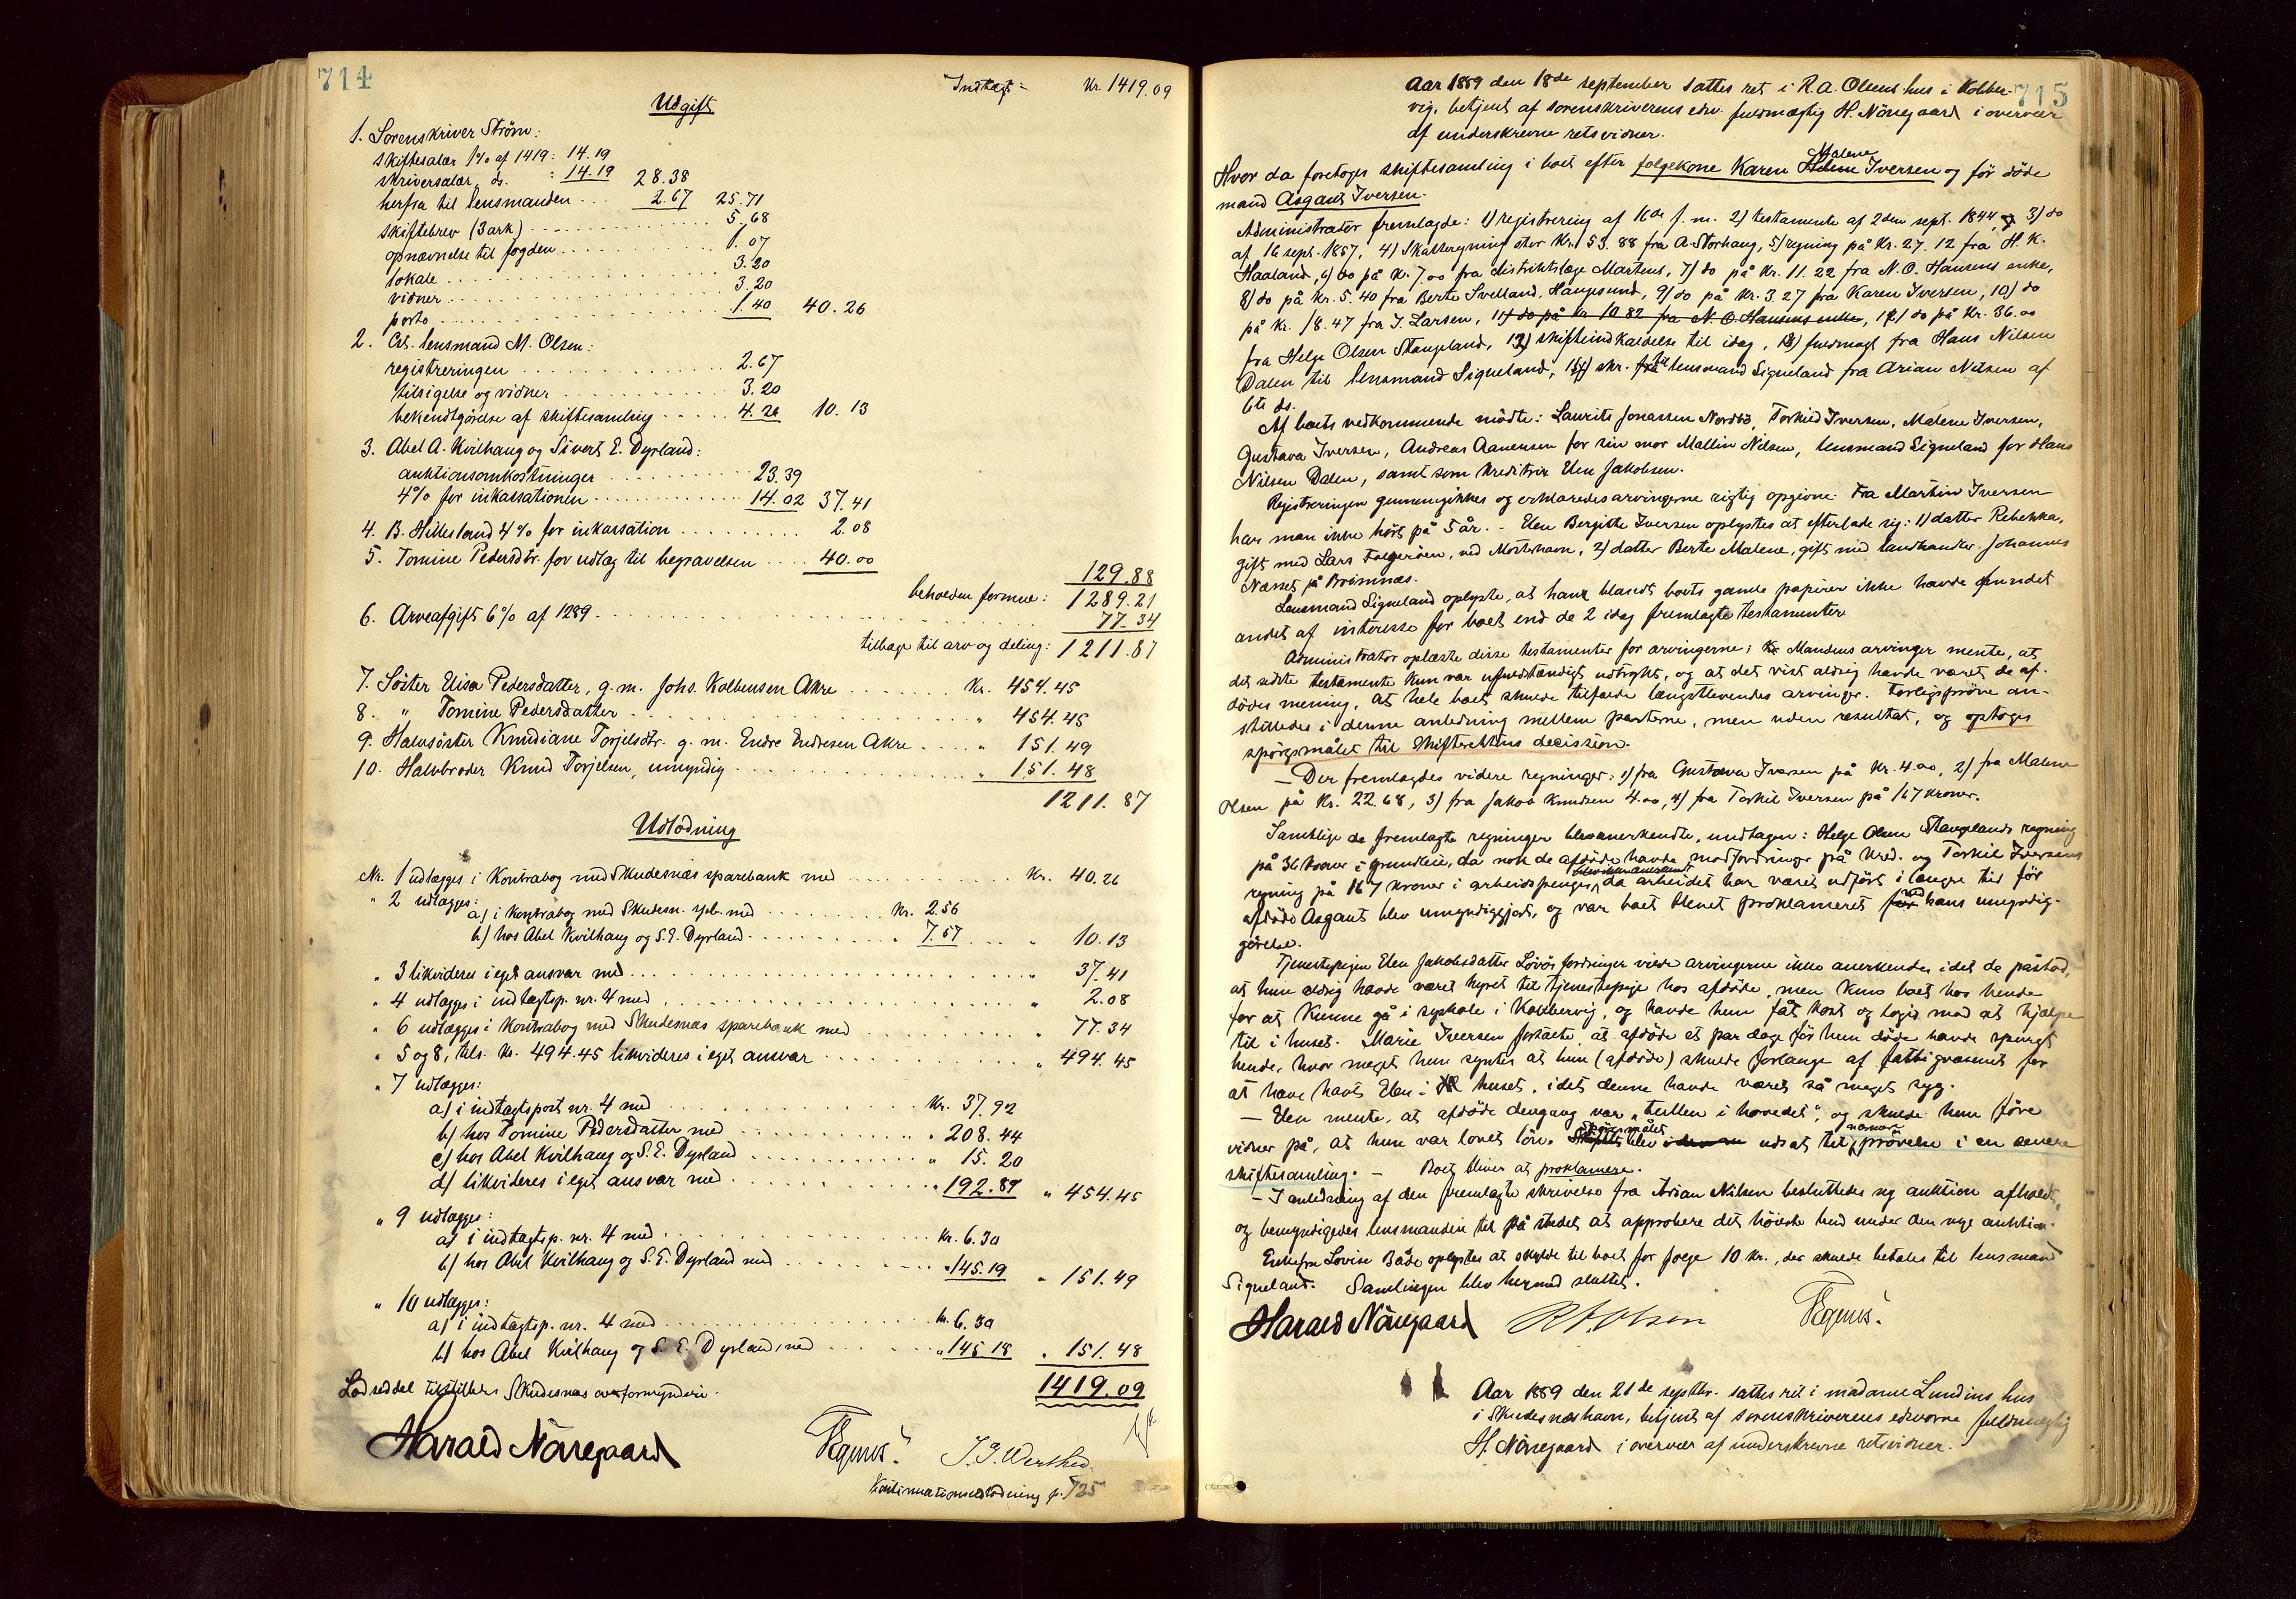 714
Indtægt = Kr. 1419.09
Udgift
1. Sorenskriver Ström:
skiftesalær 1% af 1419: 14.19
skriversalær, ds. : 14.19 28.38
herfra til lensmanden . . . 2.67 25.71
skiftebrev (3 ark) . . . 5.68
opnævnelse til fogden . . . 1.07
lokale . . . 3.20
vidner . . . 3.20
porto . . . 1.40 40.26
2. Cst. lensmand M. Olsen:
registreringen . . . 2.67
tilsigelse og vidner . . . 3.20
bekendtgörelse af skiftesamling . . . 4.26 10.13
3. Abel A. Kvilhaug og Sivert E. Dyrland:
auktionsomkostninger . . . 23.39
4% for inkassationen . . . 14.02 37.41
4. B. Hillesland 4% for inkassation . . . 2.08
5. Tomine Pedersdtr. for udlæg til begravelsen . . . 40.00
129.88
beholden formue: 1289.21
6. Arveafgift 6% af 1289 . . . 77.34
tilbage til arv og deling: 1211.87
7. Söster Elisa Pedersdatter, g. m. Johs. Kolbensen Akre . . . Kr. 454.45
8. " Tomine Pedersdatter . . . " 454.45
9. Halvsöster Knudiane Torjelsdtr. g. m. Endre Endresen Akre . . . " 151.49
10. Halvbroder Knud Torjelsen, umyndig . . . " 151.48
1211.87
Udlodning
Nr. 1 udlægges i Kontrabog med Skudesnæs sparebank med . . . Kr. 40.26
" 2 udlægges:
a) i kontrabog med Skudesn. spb. med . . . Kr. 2.56
b) hos Abel Kvilhaug og S. E. Dyrland . . . " 7.57 . . . " 10.13
" 3 likvideres i eget ansvar med . . . " 37.41
" 4 udlægges i indtægtsp. nr. 4 med . . . " 2.08
" 6 udlægges i Kontrabog med Skudesnæs sparebank med . . . " 77.34
" 5 og 8, tils. Kr. 494.45 likvideres i eget ansvar . . . " 494.45
" 7 udlægges:
a) i indtægtspost nr. 4 med . . . Kr. 37.92
b) hos Tomine Pedersdatter med . . . " 208.44
c) hos Abel Kvilhaug og S. E. Dyrland . . . " 15.20
d) likvideres i eget ansvar med . . . " 192.89 " 454.45
" 9 udlægges:
a) i indtægtsp. nr. 4 med . . . Kr. 6.30
b) hos Abel Kvilhaug og S. E. Dyrland med . . . " 145.19 " 151.49
" 10 udlægges:
a) i indtægtsp. nr. 4 med . . . Kr. 6.30
b) hos Abel Kvilhaug og S. E. Dyrland, med . . . " 145.18 " 151.48
1419.09
Lodseddel tilstilles Skudesnæs overformynderi.
Harald Nöregaard
Kontinuationsudlodning p. 725
715
Aar 1889 den 18de september sattes ret i R. A. Olsens hus i Kobber-
vig, betjent af sorenskriverens edsv. fuldmægtig H. Nöregaard i overvær
af underskrevne retsvidner.
Hvor da foretoges skiftesamling i boet efter fölgekone Karen Malene Iversen og för döde
mand Asgaut Iversen.
Administrator fremlagde: 1) registrering af 16de f. m. 2) testamente af 2den sept. 1844, 3) do
af 16 sept. 1857, 4) Skatteregning stor Kr. 53.88 fra A. Storhaug, 5) regning på Kr. 27.12 fra H. K.
Haaland, 6) do på Kr. 7.00 fra distriktslæge Martens, 7) do på Kr. 11.22 fra N. O. Hansens enke,
8) do på Kr. 5.40 fra Berte Svelland, Haugesund, 9) do på Kr. 3.27 fra Karen Iversen, 10) do
på Kr. 18.47 fra J. Larsen, 11) do på Kr 10.82 fra N. O. Hansens enke, 11) do på Kr. 36.00
fra Helge Olsen Stangeland, 12) skifteindkaldelse til idag, 13) fuldmagt fra Hans Nilsen
Dalen til lensmand Signeland, 14) skr. til lensmand Signeland fra Arian Nilsen af
6te ds.
Af boets vedkommende mödte: Laurits Jonassen Nordbö, Torkild Iversen, Malene Iversen,
Gustava Iversen, Andreas Aanensen for sin mor Mallin Nilsen, lensmand Signeland for Hans
Nilsen Dalen, samt som kreditrix Elen Jakobsen.
Registreringen gennemgikkes og erklæredes arvingerne rigtig opgivne. Fra Martin Iversen
har man ikke hört på 5 år. – Elen Bergitte Iversen oplystes at efterlade sig: 1) datter Rebekka,
gift med Lars Fægeröen, ved Mosterhavn, 2) datter Berte Malene, gift med landhandler Johannes
Næsset på Brimnæs.
Lensmand Signeland oplyste, at han blandt boets gamle papirer ikke havde fundet
andet af interesse for boet end de 2 idag fremlagte testamenter.
Administrator oplæste disse testamenter for arvingerne; Mandens arvinger mente, at
det sidste testamente kun var ufuldstændigt udtrykt, og at det vist aldrig havde været de af-
dödes mening, at hele boet skulde tilfalde længstlevendes arvinger. Forligspröve an-
stilledes i denne anledning mellem parterne, men uden resultat, og optoges
spörgsmålet til skifterettens decission.
– Der fremlagdes videre regninger: 1) fra Gustava Iversen på Kr. 4.00, 2) fra Malene
Olsen på Kr. 22.68, 3) fra Jakob Knudsen 4.00, 4) fra Torkil Iversen på 167 kroner.
Samtlige de fremlagte regninger blev anerkendte, undtagen: Helge Olsen Stangelands regning
på 36 kroner i grundleie, da nok de afdöde havde modfordringer på kred. og Torkil Iversens
regning på 167 kroner i arbeidspenge, blev ikke anerkendt, da arbeidet har været udfört i længre tid för
afdöde Asgaut blev umyndiggjort, og var boet blevet proklameret ved hans umyndig-
görelse.
Tjenestepigen Elen Jakobsdatter Lövös fordringer vilde arvingerne ikke anerkende, idet de påstod,
at hun aldrig havde været hyret til tjenestepige hos afdöde, men kun boet hos hende
for at kunne gå i syskole i Kobbervig, og havde hun fåt kost og logis mod at hjælpe
til i huset. Marie Iversen fortalte, at afdöde et par dage för hun döde havde spurgt
hende, hvor meget hun syntes at hun (afdöde) skulde forlange af fattigvæsenet for
at have havt Elen i huset, idet denne havde været så meget syg.
– Elen mente, at afdöde dengang var "tullen i hovedet", og skulde hun före
vidner på, at hun var lovet lön. Spörgsmålet blev udsat til nærmere prövelse i en senere
skiftesamling. – Boet bliver at proklamere.
– I anledning af den fremlagte skrivelse fra Arian Nilsen besluttedes ny auktion afholdt,
og bemyndigedes lensmanden til på stedet at approbere det höieste bud under den nye auktion.
Enkefru Lovise Både oplystes at skylde til boet for forge 10 kr., der skulde betales til lensmand
Signeland. Samlingen blev hermed sluttet.
Harald Nöregaard R A Olsen
Aar 1889 den 21de septbr. sattes ret i madame Lundins hus
i Skudesnæshavn, betjent af sorenskriverens edsvorne fuldmægtig
H. Nöregaard i overvær af underskrevne retsvidner.